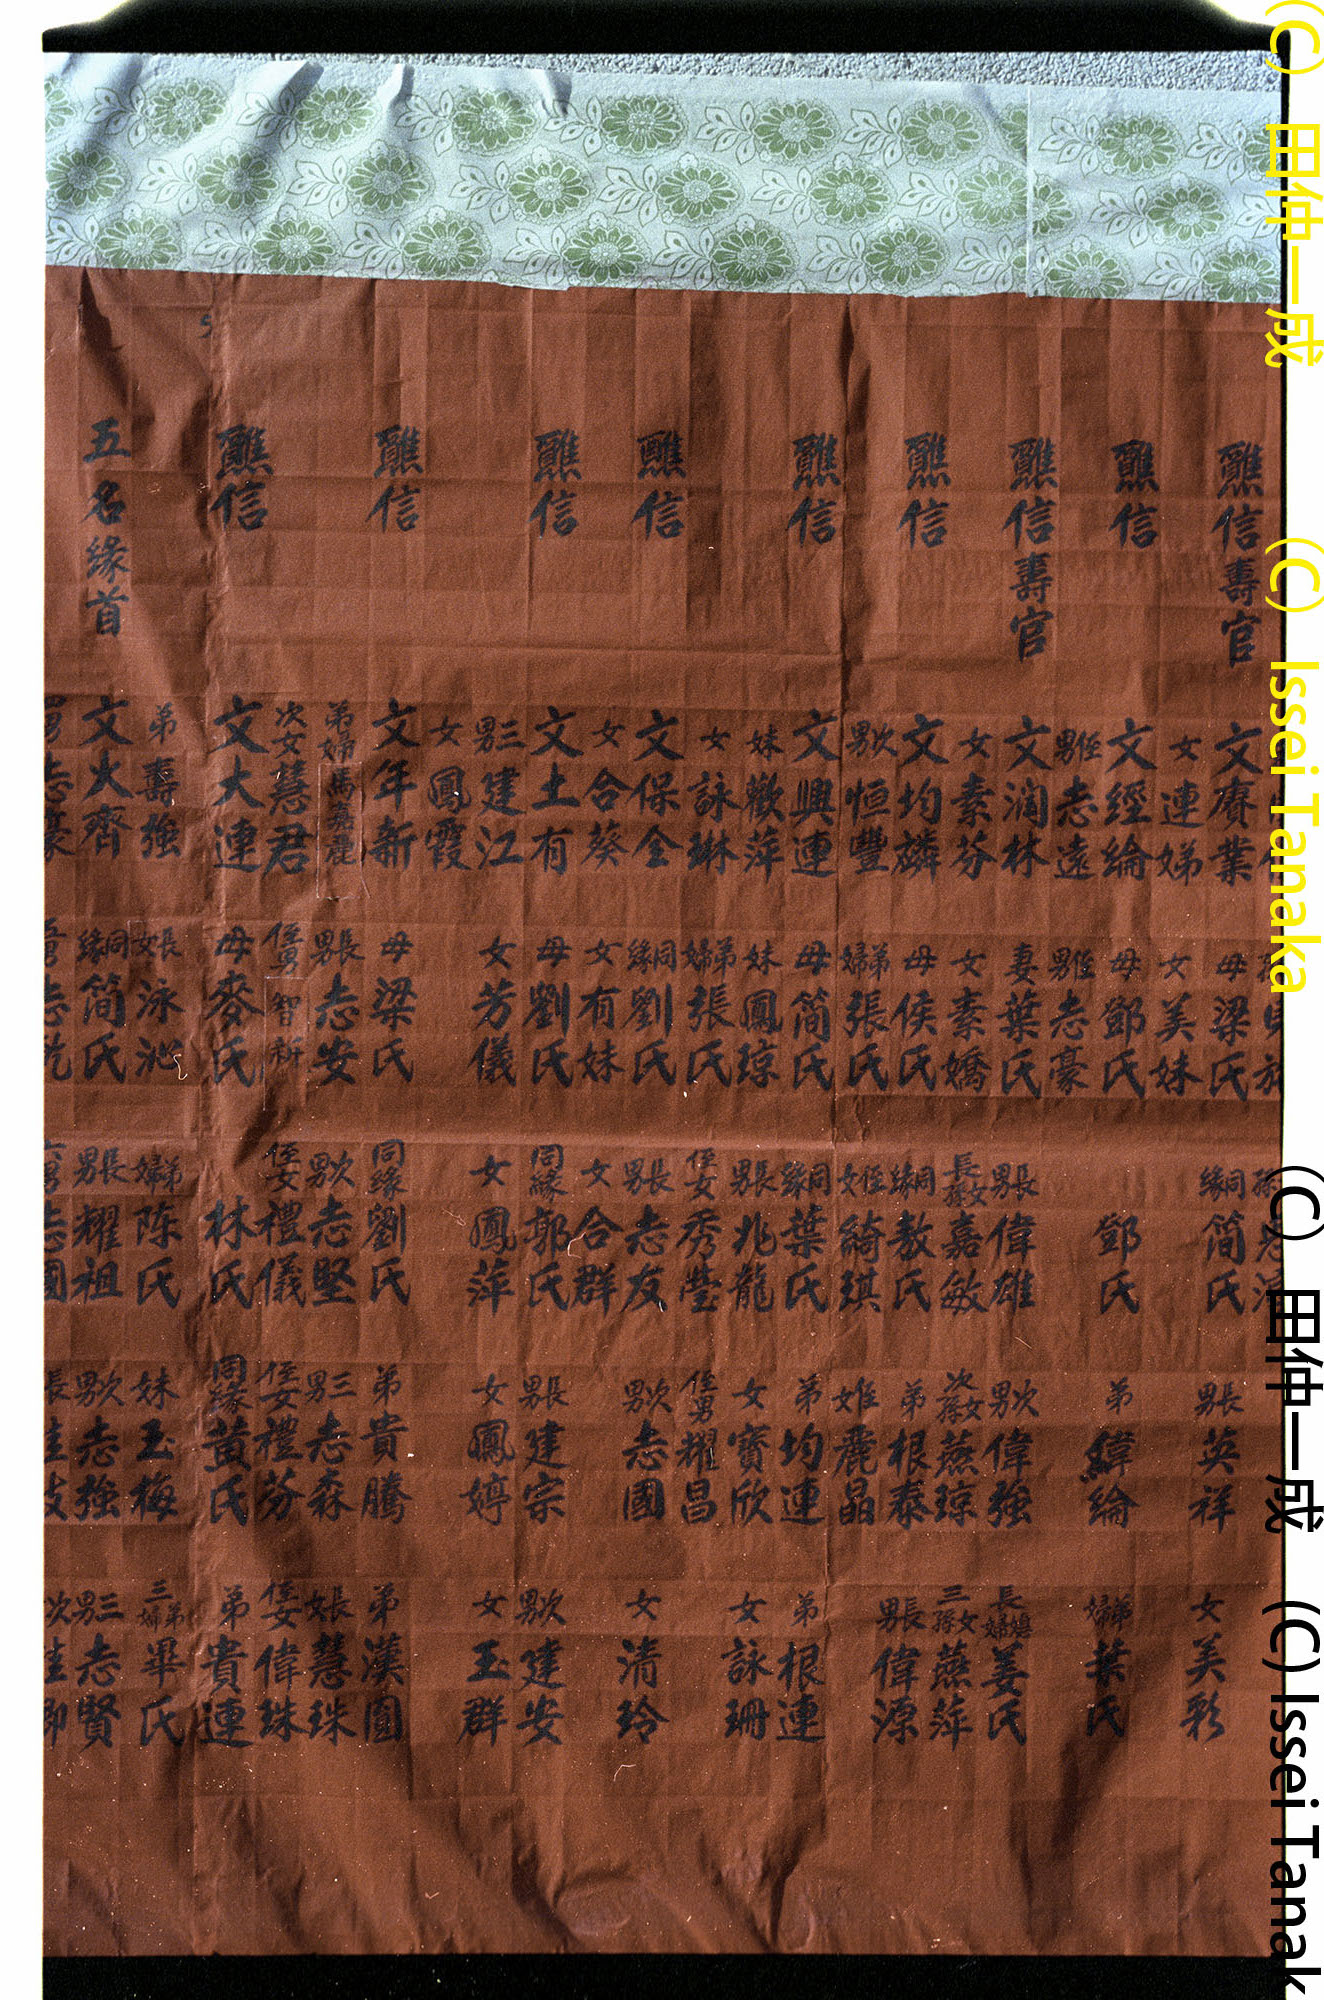 醮信壽官 文賡業 母梁氏 同緣簡氏 長男英祥 女美彩
女連娣 女美妹
醮信 文經綸 母鄧氏 鄧氏 弟緯綸 弟婦葉氏
侄男志遠 侄男志豪
醮信壽官 文潤林 妻葉氏 長男偉雄 次男偉強 長媳婦姜氏
女素芬 女素嬌 長孫女嘉敏 次孫女燕琼 三孫女燕萍
醮信 文均麟 母侯氏 同緣敖氏 弟根泰 長男偉源
次男恒豐 弟婦張氏 侄女綺琪 侄女麗晶
醮信 文興連 母簡氏 同緣葉氏 弟均連 弟根連
妹歡萍 妹鳳琼 長男兆龍 女寳欣 女詠珊
女詠琳 弟婦張氏 侄女秀瑩 侄男耀昌
醮信 文保全 同緣劉氏 長男志友 次男志國 女清玲
女合葵 女有妹 女合群
醮信 文土有 母劉氏 同緣郭氏 長男建宗 次男建安
三男建江 女芳儀 女鳳萍 女鳳婷 女玉群
女鳳霞
醮信 文年新 母梁氏 同緣劉氏 弟貴騰 弟漢圓
弟婦馬嘉麗 長男志安 次男志堅 三男志森 長女慧珠
次女慧君 侄男智新 侄女禮儀 侄女禮芬 侄女偉珠
醮信 文大連 母麥氏 林氏 同緣黃氏 弟貴連
弟壽強 長女泳沁 弟婦陈氏 妹玉梅 三弟婦畢氏
五名緣首 文火齊 同緣簡氏 長男耀祖 次男志強 三男志賢
(C) 田仲一成 (C) Issei Tanaka
(C) 田仲一成 (C) Issei Tanak